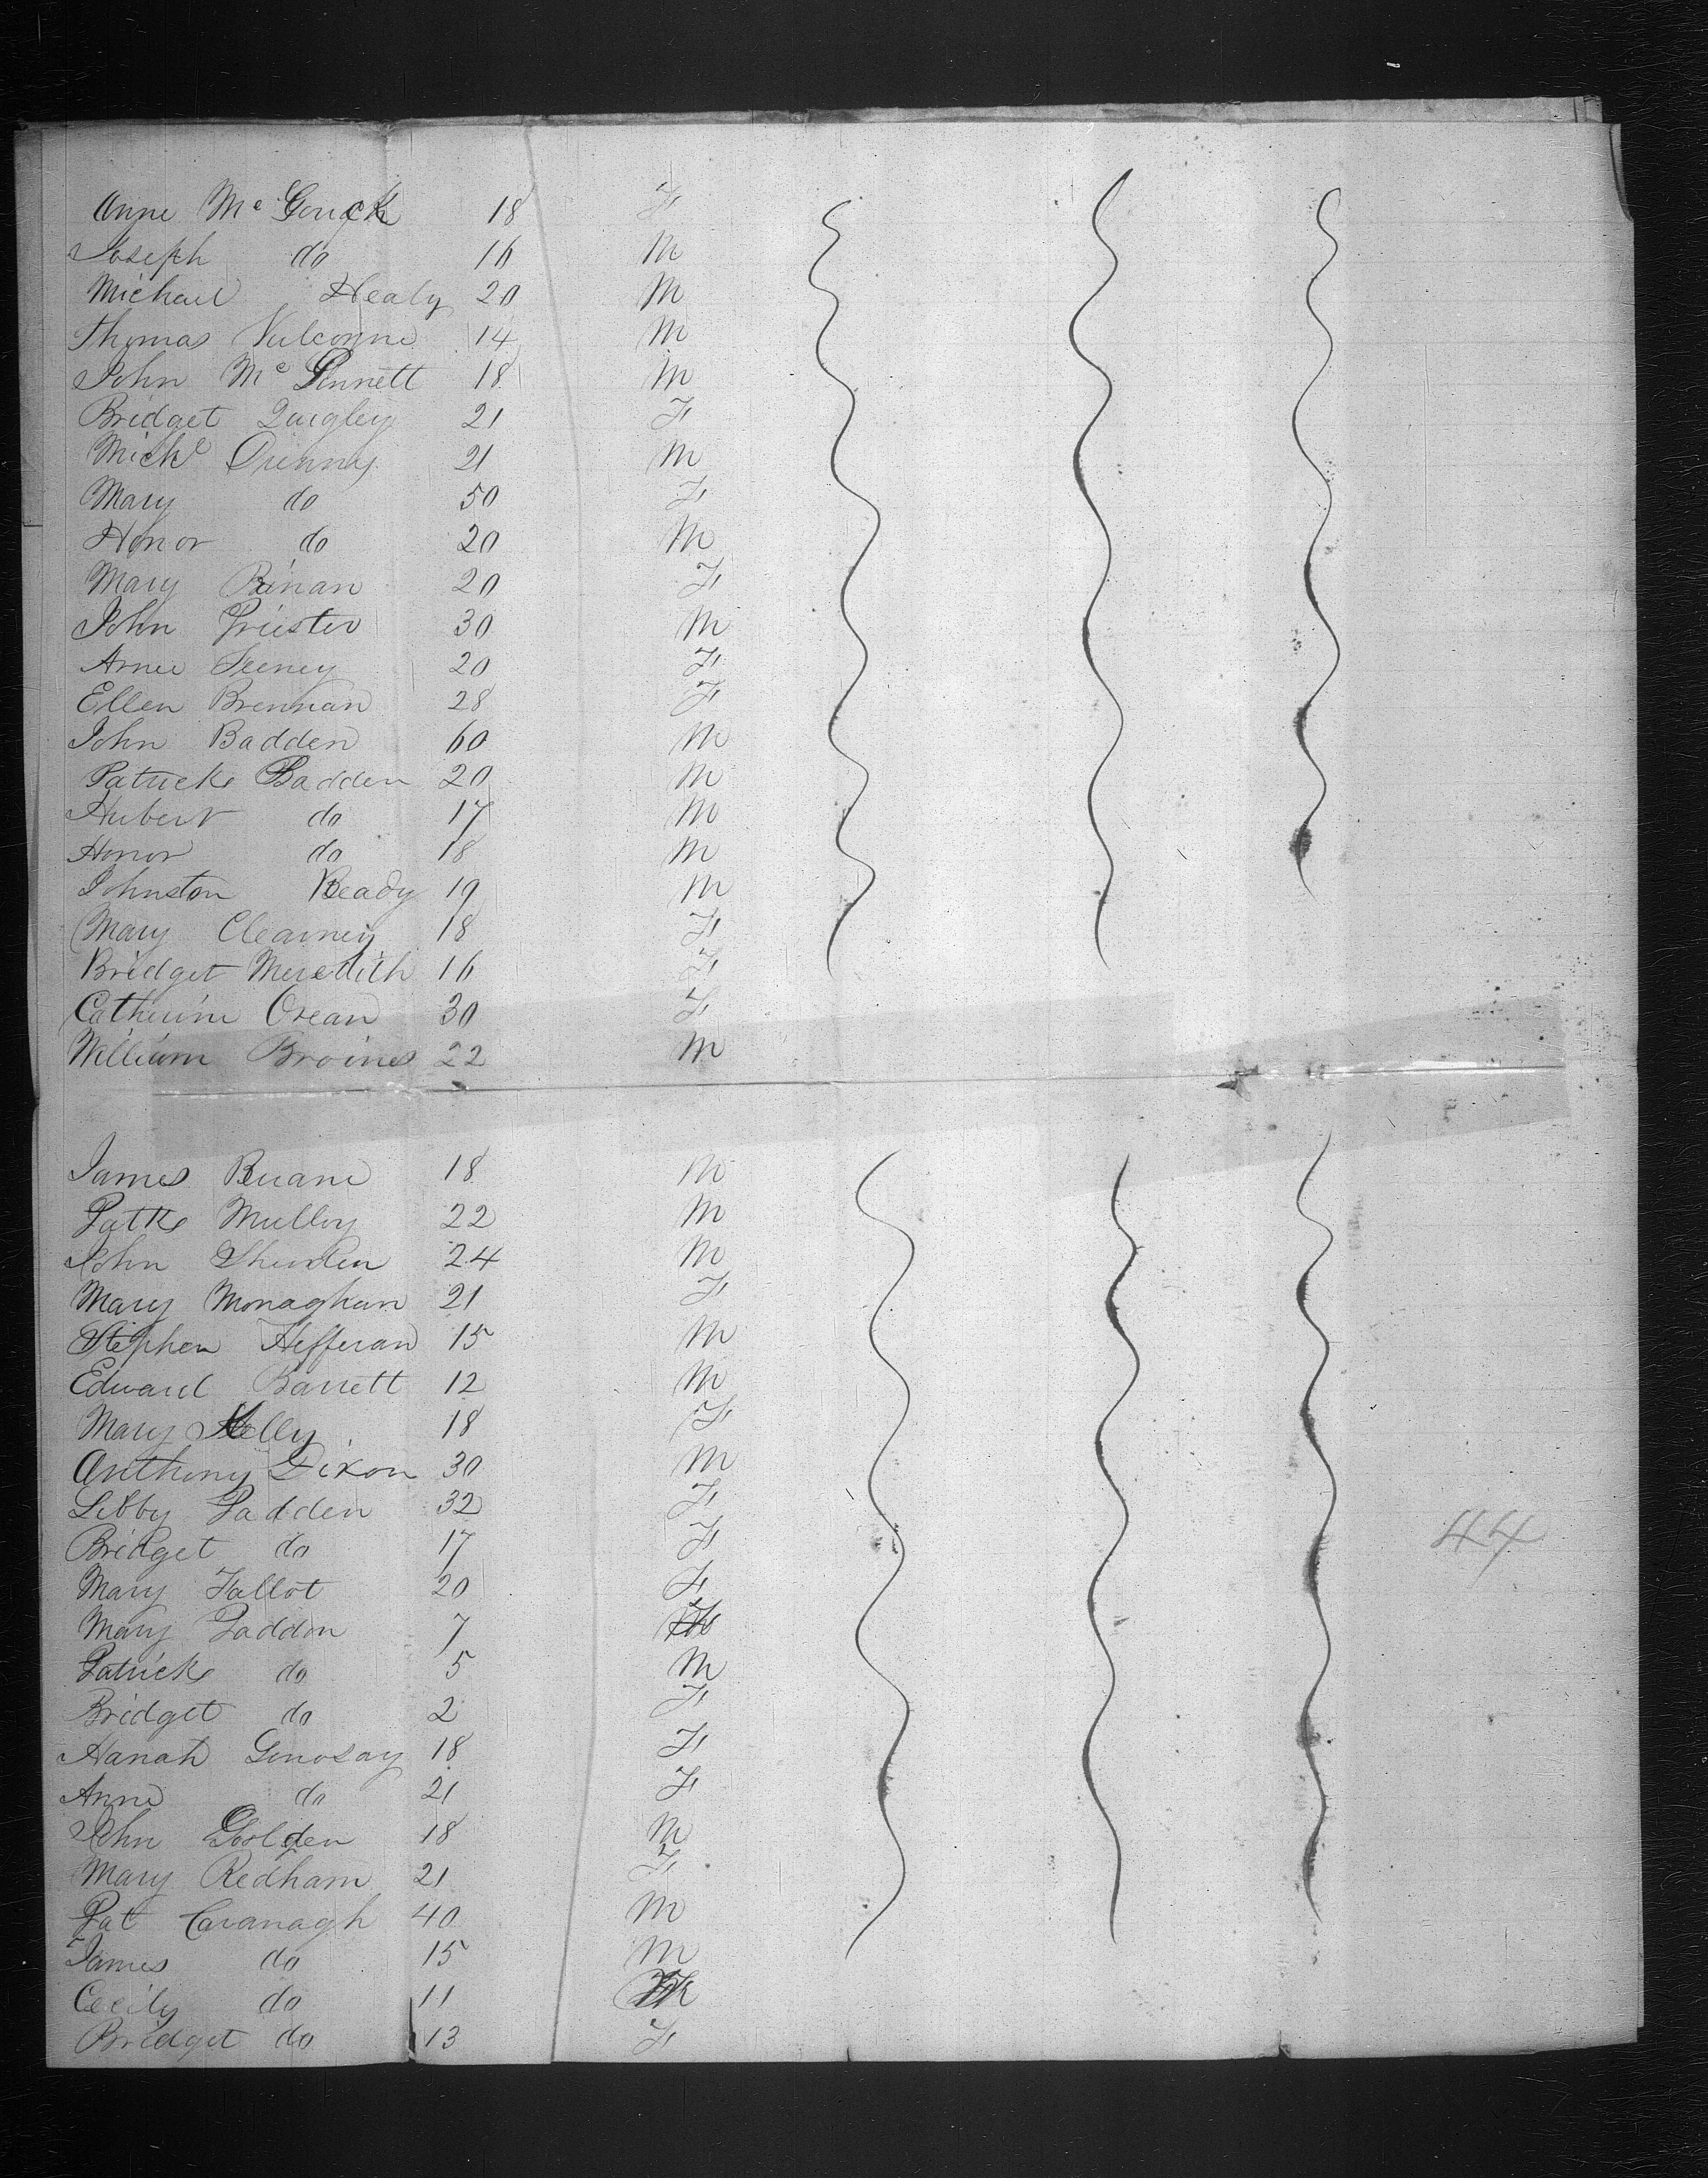 Anne McGouck 18 F
Joseph do 16 M
Michael Healy 20 M
Thomas 14 M
John McPinnett 18 M
Bridget Quigley 21 F
Mickl 21 M
Mary do 50 F
Honor do 20 M
Mary 20 F
John Priester 30 M
Annie Feeney 20 F
Ellen Brennan 28 F
John Badden 60 M
Patrick Badden 20 M
Hubert do 17 M
Honor do 18 M
Johnston Beady 19 M
Mary Clearney 18 F
Bridget Meredith 16 F
Catherine Orean 30 F
William Broines 22 M
James Ruane 18 M
Patk Mulloy 22 M
John 24 M
Mary Monaghan 21 F
Stephen Hefferan 15 M
Edward Barrett 12 M
Mary Kelly 18 F
Anthony Dixon 30 M
Libby Padden 32 F
Bridget do 17 F
Mary Fallot 20 F
Mary Paddon 7
Patrick do 5 M
Bridget do 2 F
Hanah 18 F
Anne do 21 F
John Goolden 18 M
Mary Redham 21 F
Pat Cavanagh 40 M
James do 15 M
Cecily do 11
Bridget do 13 F
44